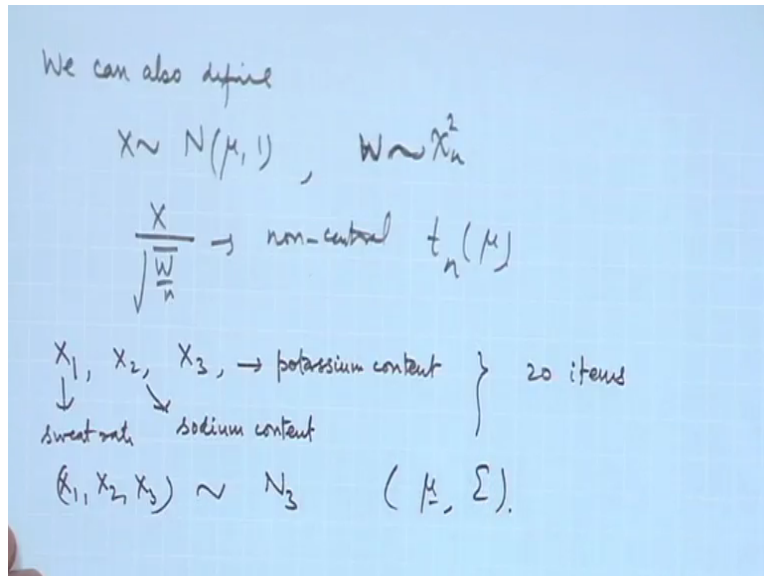 We can also define
X ~ N(μ, 1), W ~ χ²ₙ
X / √(W/n) → non-central tₙ(μ)
X₁, X₂, X₃, → potassium content } 20 items
sweat rate sodium content
(X₁, X₂, X₃) ~ N₃ (μ, Σ).